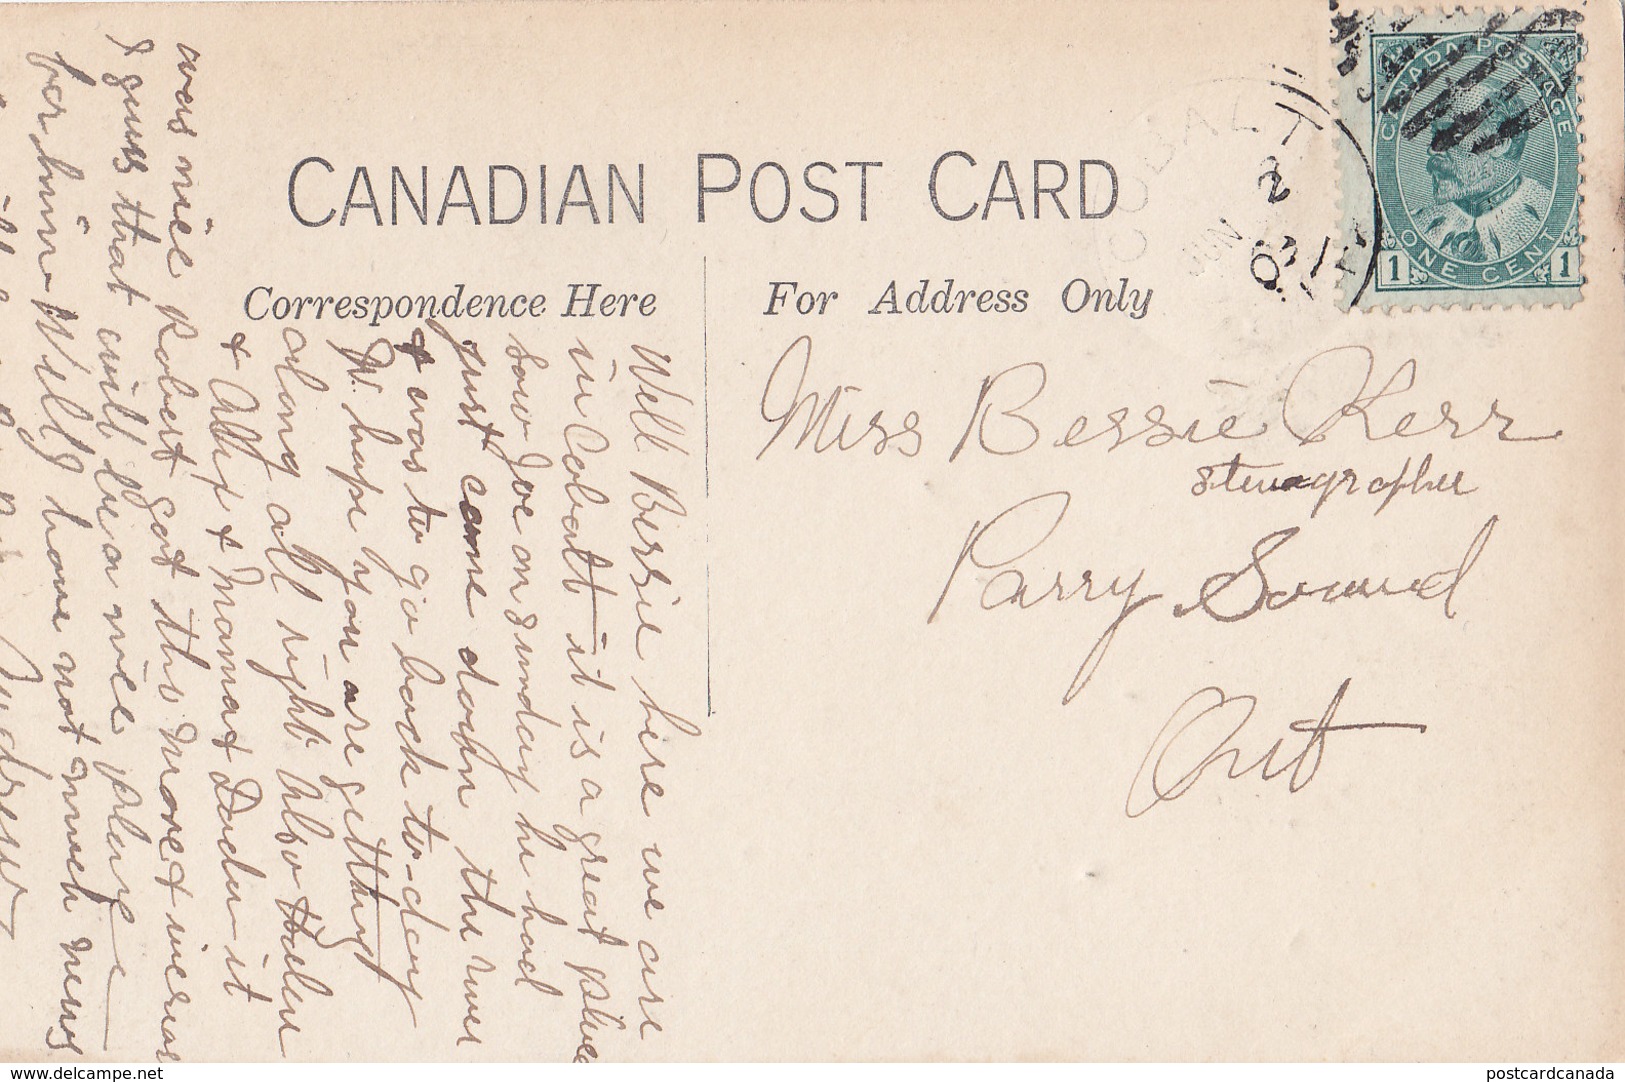 CANADIAN POST CARD
Correspondence Here
For Address Only
COBALT
JUN
2
CANADA POSTAGE
ONE CENT
1 1
Miss Bessie Kerr
stenographer
Parry Sound
Ont
Well Bessie here we are
in Cobalt it is a great place
saw Joe on Sunday he had
just came down the river
& was to go back to-day
W. hope you are getting
along all right Also Helen
& Ally & Mama & Dada it
was nice Robert got the
I guess that will be a nice place
for him Well I have not much news
Andrew
delcampe.net
postcardcanada